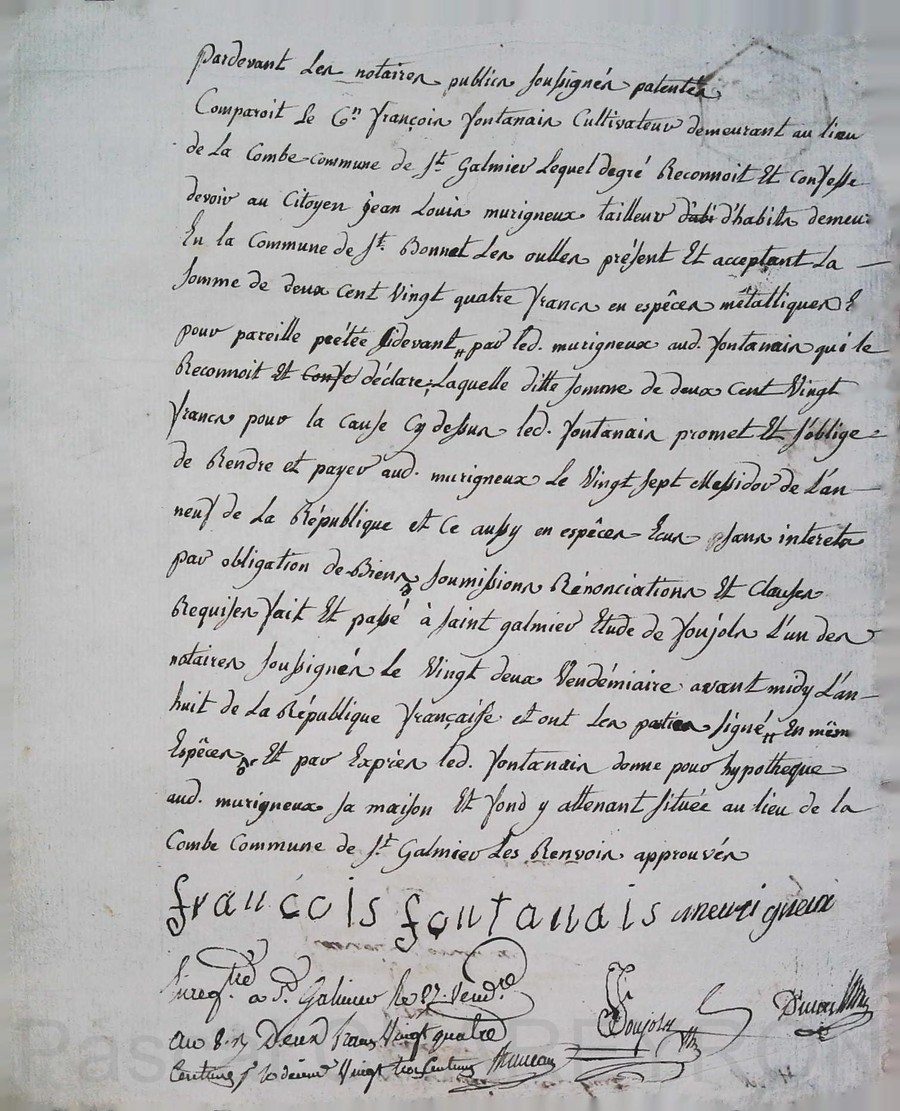 Pardevant Les notaires publics soussignés patentés
Comparoit Le Cen françois fontanais Cultivateur demeurant au lieu
de La Combe commune de St. Galmier Lequel degré Reconnoit Et Confesse
devoir au Citoyen jean Louis murigneux tailleur d'abi d'habits demeur
En la Commune de St. Bonnet Les oulles présent Et acceptant La
Somme de deux Cent Vingt quatre francs en espêces métalliques E
pour pareille prétée par led. murigneux aud. fontanais qui le
Reconnoit Et Confe déclare, Laquelle ditte somme de deux Cent Vingt
francs pour la cause Cy dessus led. fontanais promet Et s'oblige
de Rendre et payer aud. murigneux Le Vingt Sept Messidor de L'an
neuf de La République et Ce aussy en espêces Ecus sans interets
par obligation de Biens, Soumissions Rénonciations Et Clauses
Requises fait Et passé à Saint galmier Etude de Poujols L'un des
notaires Soussignés Le Vingt deux Vendémiaire avant midy L'an
huit de La République française et ont Les parties signé En mêm
Espêces Et par Exprès led. fontanais donne pour hypotheque
aud. murigneux sa maison Et fond y attenant située au lieu de la
Combe Commune de St. Galmier Les Renvois approuvés
francois fontanais murigneux
Enregtré a St. Galmier Le 27 Vendre
au 8 Deux francs Vingt quatre
Centimes Vingt trois Centimes
Poujols